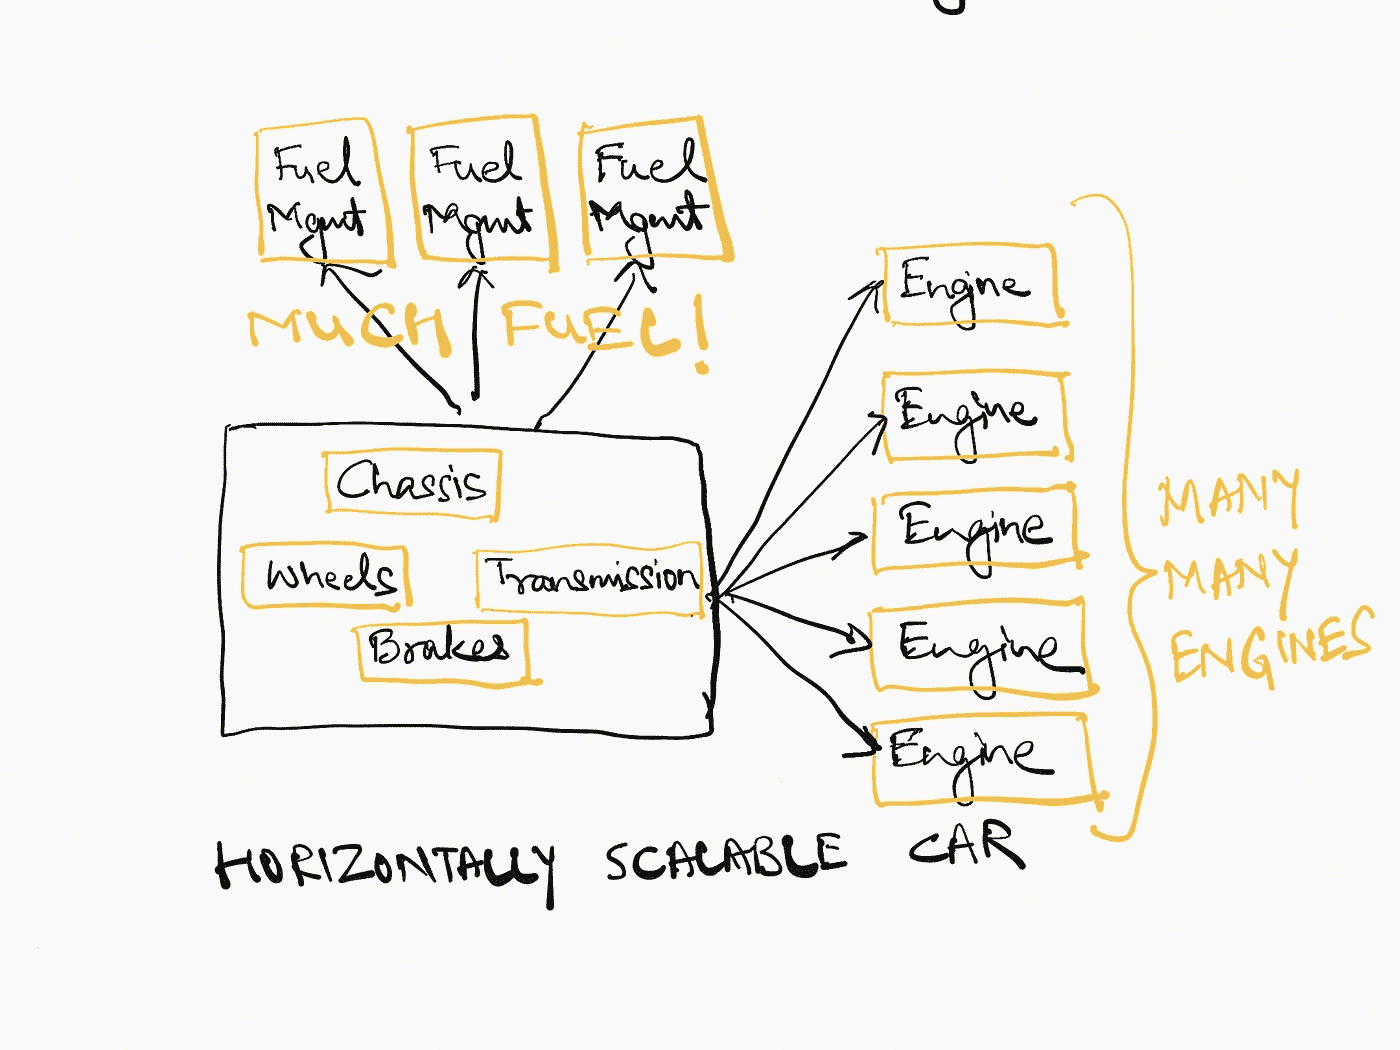 Fuel
Mgmt
Fuel
Mgmt
Fuel
Mgmt
MUCH FUEL!
Chassis
Wheels
Transmission
Brakes
Engine
Engine
Engine
Engine
Engine
MANY
MANY
ENGINES
HORIZONTALLY SCALABLE CAR